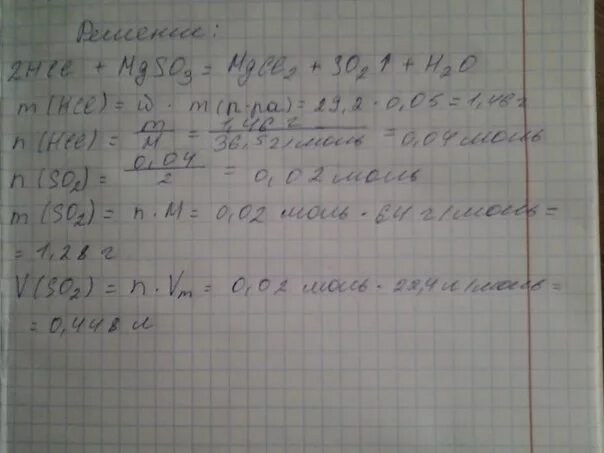 Решение:
2HCl + MgSO₃ = MgCl₂ + SO₂↑ + H₂O
m(HCl) = ω · m(р-ра) = 29,2 · 0,05 = 1,46 г
n(HCl) = m/M = 1,46 г/36,5 г/моль = 0,04 моль
n(SO₂) = 0,04/2 = 0,02 моль
m(SO₂) = n · M = 0,02 моль · 64 г/моль =
= 1,28 г
V(SO₂) = n · Vm = 0,02 моль · 22,4 л/моль =
= 0,448 л